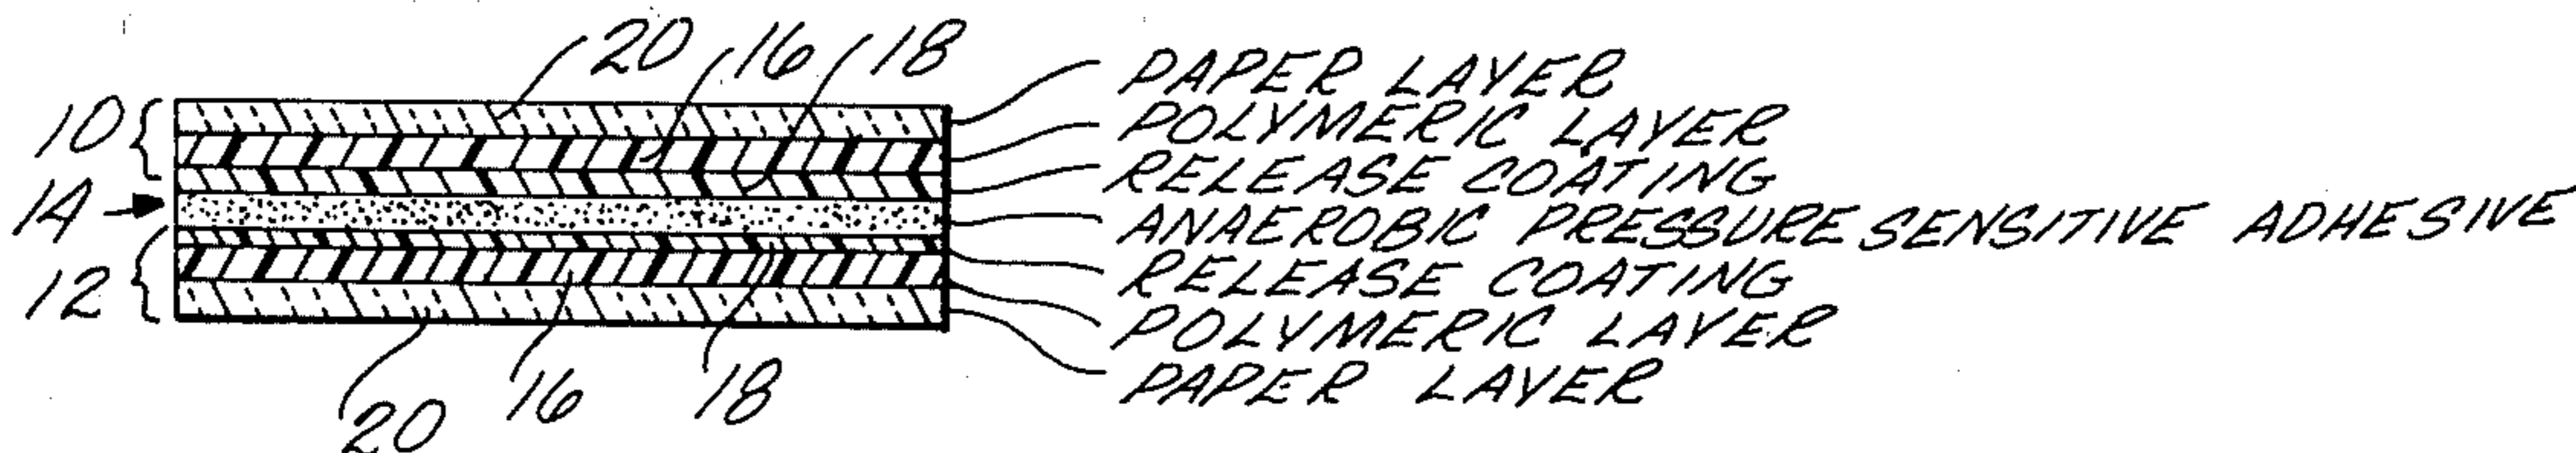 20 16 18
10
14
12
20 16 18
PAPER LAYER
POLYMERIC LAYER
RELEASE COATING
ANAEROBIC PRESSURE SENSITIVE ADHESIVE
RELEASE COATING
POLYMERIC LAYER
PAPER LAYER